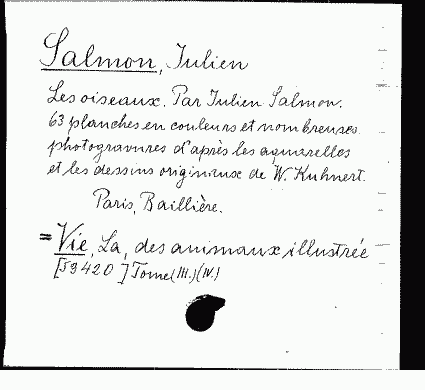 Salmon, Julien
Les oiseaux. Par Julien Salmon.
63 planches en couleurs et nombreuses
photogravures d'après les aquarelles
et les dessins originaux de W. Kuhnert.
Paris, Baillière.
= Vie, La, des animaux illustrée
[J9420] Tome (III.) (IV.)